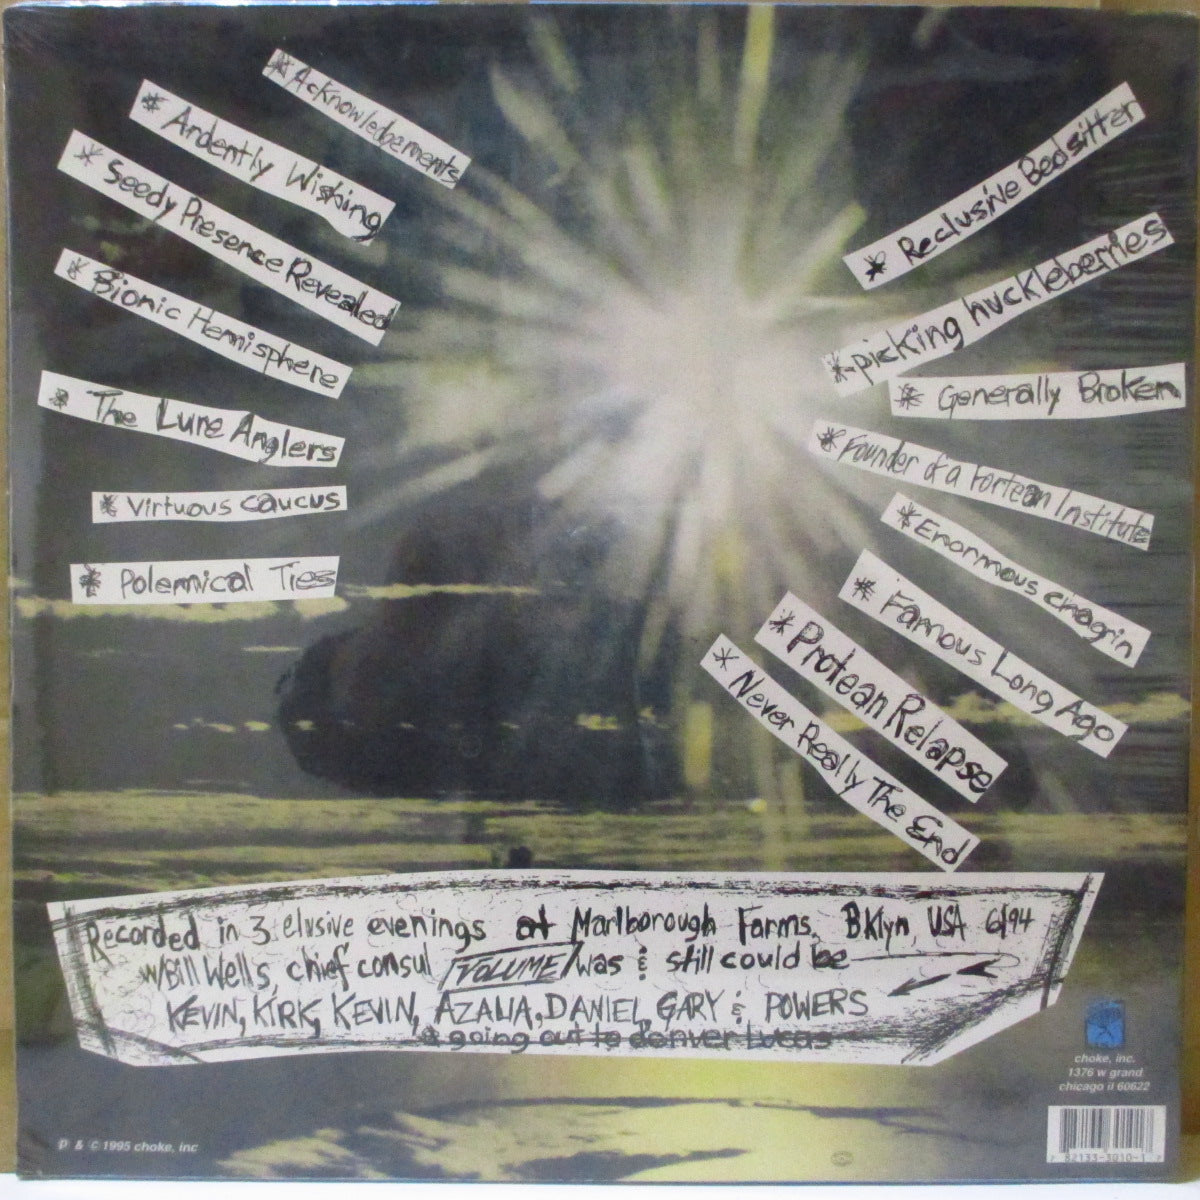 * Acknowledgements
* Ardently Wisking
* Seedy Presence Revealed
* Bionic Hemisphere
* The Lure Anglers
* Virtuous caucus
* Polemical Ties
* Reclusive Bedsitter
* picking huckleberries
* Generally Broken
* Founder of a Fortean Institute
* Enormous chagrin
* Famous Long Ago
* Protean Relapse
* Never Really The End
Recorded in 3 elusive evenings at Marlborough Farms, BKlyn, USA 6/94
w/Bill Wells, chief consul VOLUME was & still could be
KEVIN, KIRK, KEVIN, AZALIA, DANIEL, GARY & POWERS
* going out to denver Lucas
choke, inc.
1376 w grand
chicago il 60622
℗ & © 1995 choke, inc
7 82133-3010-1 7